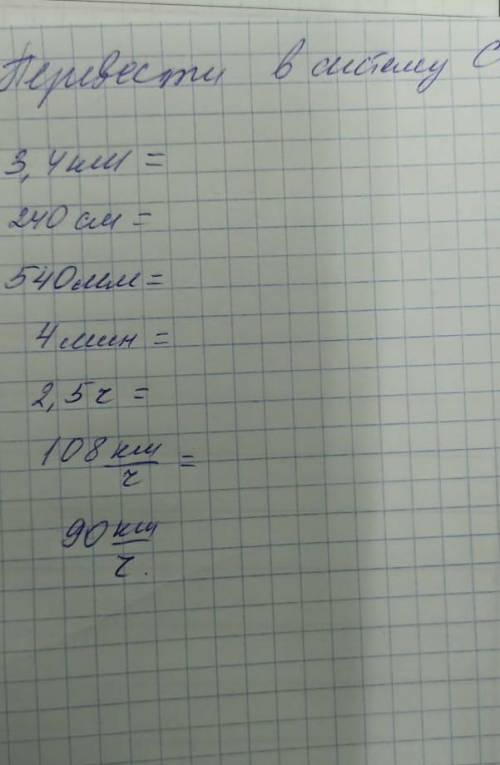 Перевести в систему С
3,4 км =
240 см =
540 мм =
4 мин =
2,5 ч =
108 км/ч =
90 км/ч.